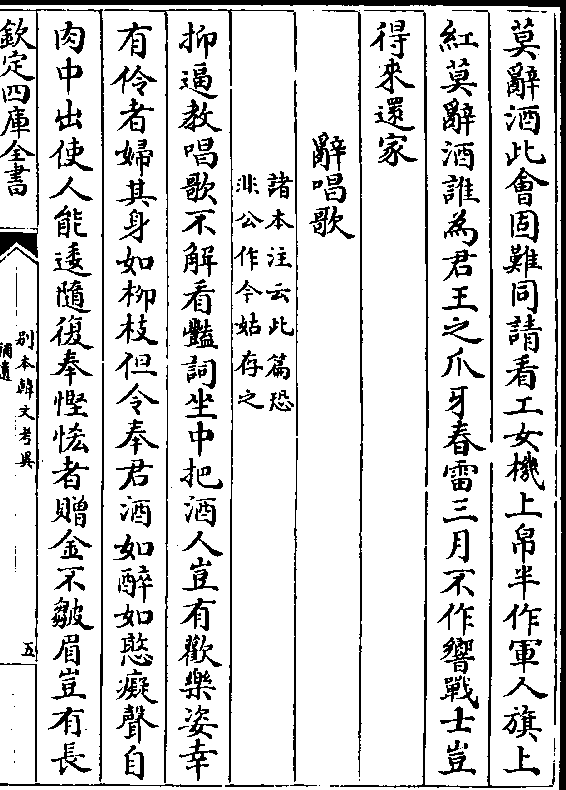 莫辭酒此會固難同請看工女機上帛半作軍人旗上
紅莫辭酒誰為君王之爪牙春雷三月不作響戰士豈
得來還家
辭唱歌
諸本注云此篇恐
非公作今姑存之
抑逼教唱歌不解看豔詞坐中把酒人豈有歡樂姿幸
有伶者婦其身如柳枝但令奉君酒如醉如憨癡聲自
肉中出使人能逶隨復奉慳恡者贈金不皺眉豈有長
欽定四庫全書
別本韓文考異
補遺
五